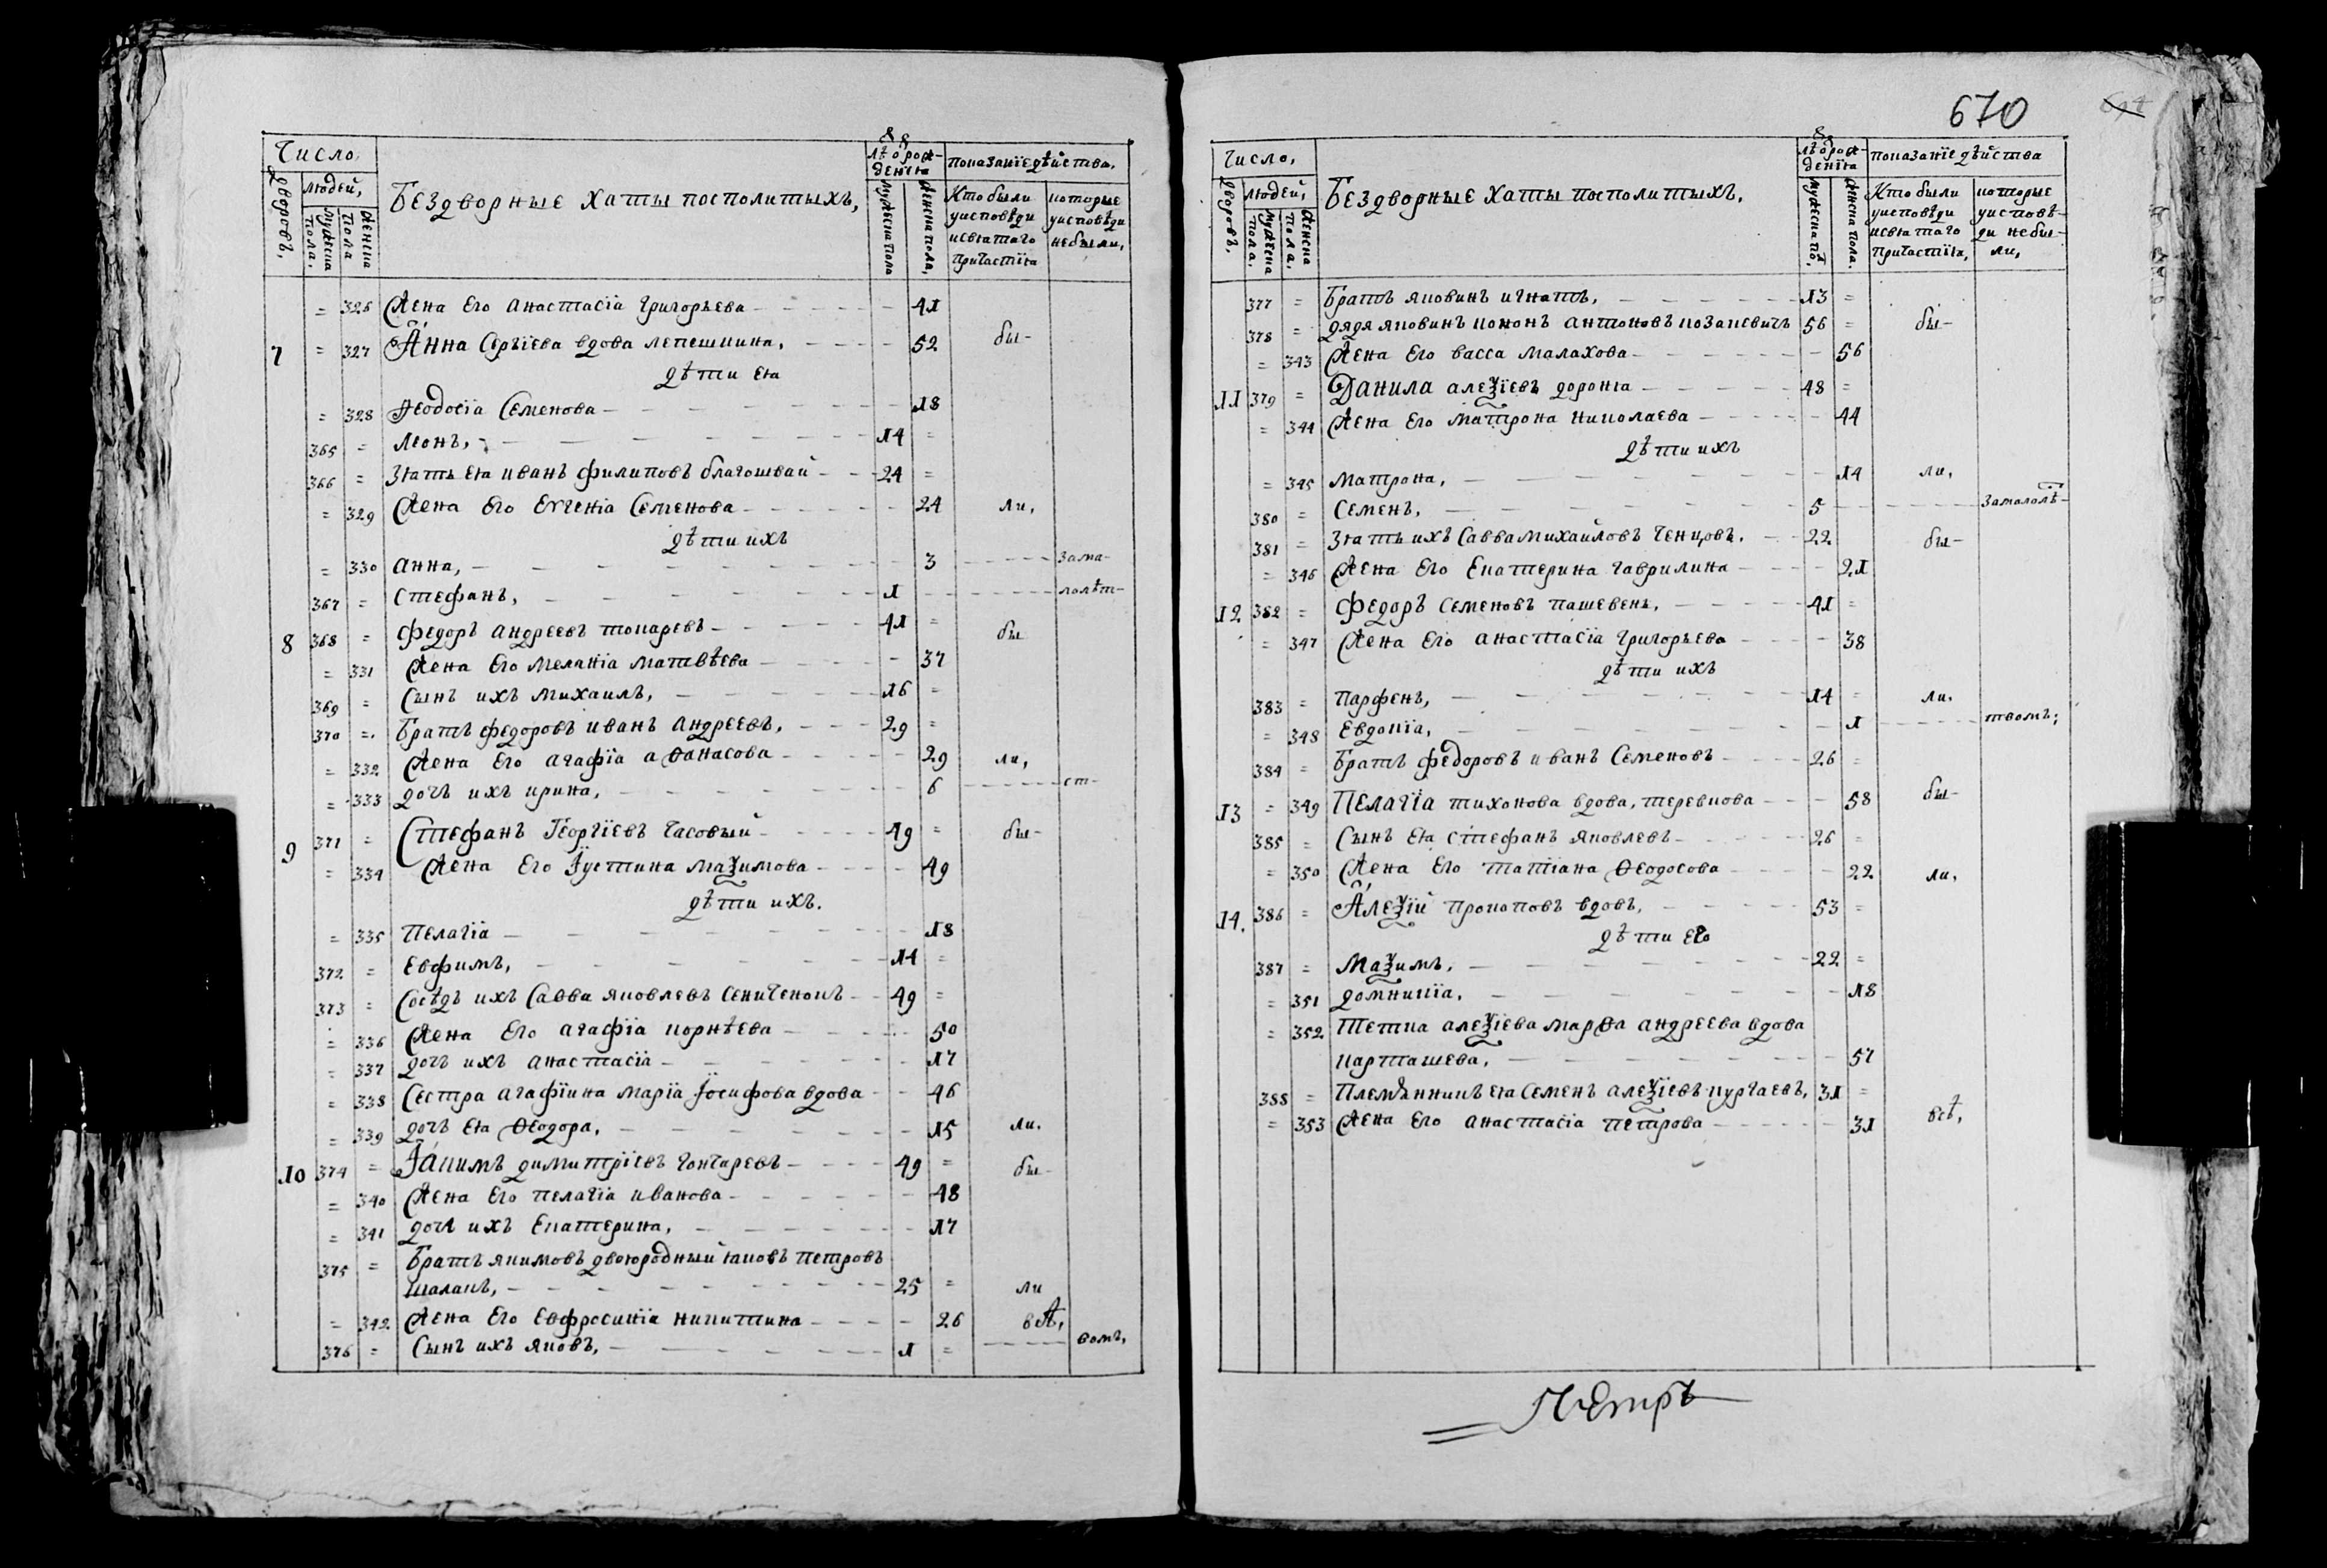 Число,
людей,
дворовъ,
мужеска пола,
женска пола
Бездворные хаты посполитыхъ,
Лѣ ѿ рож-
денїѧ
мужеска пола
женска пола,
показанїе дѣйства,
Кто были
уисповѣди
исвѧтаго
причастїѧ
которые
уисповѣди
небыли,
= 326 Жена Его анастасїа григорьева 41
7 = 327 Анна Сергїева вдова лепешкина, 52 бы-
дѣти еѧ
= 328 Ѳеодосїа Семенова 18
365 = леонъ, 14 =
366 = зѧть еѧ иванъ филиповъ благошвай 24 =
= 329 Жена Его Евгенїа Семенова 24 ли,
дѣти ихъ
= 330 анна, 3 зама-
367 = стефанъ, 1 лолѣт-
8 368 = федоръ андреевъ токаревъ 41 = бы
= 331 Жена Его меланїа матвѣева 37
369 = Сынъ ихъ михаилъ, 16 =
370 = братъ федоровъ иванъ андреевъ, 29 =
= 332 Жена Его агафїа аѳанасова 29 ли,
= 333 дочъ ихъ ирина, 6 ст-
9 371 = Стефанъ Георгїевъ часовый 49 = бы-
= 334 Жена Его Їустина маѯимова 49
дѣти ихъ.
= 335 Пелагїа 18
372 = Евфимъ, 14 =
373 = Сосѣдъ ихъ Савва яковлевъ Сениченокъ 49 =
= 336 Жена Его агафїа корнѣева 50
= 337 дочъ ихъ анастасїа 17
= 338 Сестра агафїина марїа Їосифова вдова 46
= 339 дочъ еѧ Ѳеодора, 15 ли.
10 374 = Їакимъ димитрїевъ гончаревъ 49 = бы-
= 340 Жена Его пелагїа иванова 48
= 341 дочъ ихъ Екатерина, 17
375 = братъ якимовъ двоюродный ѧковъ петровъ
шалапъ, 25 = ли
= 342 Жена Его Евфросинїа никитина 26 всѣ,
376 = Сынъ ихъ яковъ, 1 = вомъ,
670
Число,
людей,
дворовъ,
мужеска пола,
женска пола,
Бездворные хаты посполитыхъ,
Лѣ ѿ рож-
денїѧ
мужеска по,
женска пола.
показанїе дѣйства
Кто были
уисповѣди
исвѧтаго
причастїѧ,
которые
уисповѣ-
ди небы-
ли,
377 = братъ яковинъ игнатъ, 13 =
378 = дядя яковинъ конон антоновъ козакевичъ 56 = бы-
= 343 Жена Его васса малахова 56
11 379 = Данила алеѯїевъ доронѧ 48 =
= 344 Жена Его матрона николаева 44
дѣти ихъ
= 345 матрона, 14 ли,
380 = Семенъ, 5 замалолѣт-
381 = Зѧть ихъ Савва михайловъ Ченцовъ, 22 бы-
= 346 Жена Его Екатерина гаврилина 21
12 382 = федоръ Семеновъ пашевенъ, 41 =
= 347 Жена Его анастасїа григорьева 38
дѣти ихъ
383 = парфенъ, 14 = ли.
= 348 Евдокїа, 1 твомъ;
384 = братъ федоровъ иванъ Семеновъ 26 =
13 = 349 Пелагїа тихонова вдова, теревкова 58 бы-
385 = Сынъ еѧ стефанъ яковлевъ 26 =
= 350 Жена Его татїана Ѳеодосова 22 ли,
14. 386 = Алеѯїй прокоповъ вдовъ, 53 =
дѣти его
387 = маѯимъ, 22 =
= 351 домникїа, 18
= 352 Тетка алеѯїева марѳа андреева вдова
карташева, 57
388 = Племѧнникъ еѧ Семенъ алеѯїевъ кургаевъ, 31 =
= 353 Жена Его анастасїа петрова 31 всѣ,
Петръ